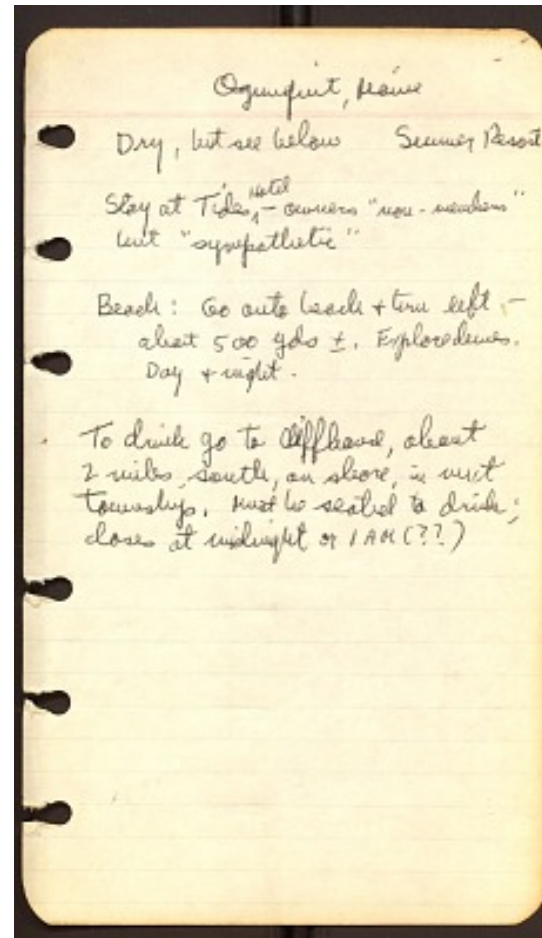 Ogunquit, Maine
Dry, but see below Summer Resort
Stay at Tides Hotel – owners "non-members"
but "sympathetic"
Beach: Go onto beach + turn left –
about 500 yds ±. Explore dunes.
Day + night.
To drink go to Cliffhouse, about
2 miles south, on shore, in next
township. Must be seated to drink;
closes at midnight or 1 AM (??)